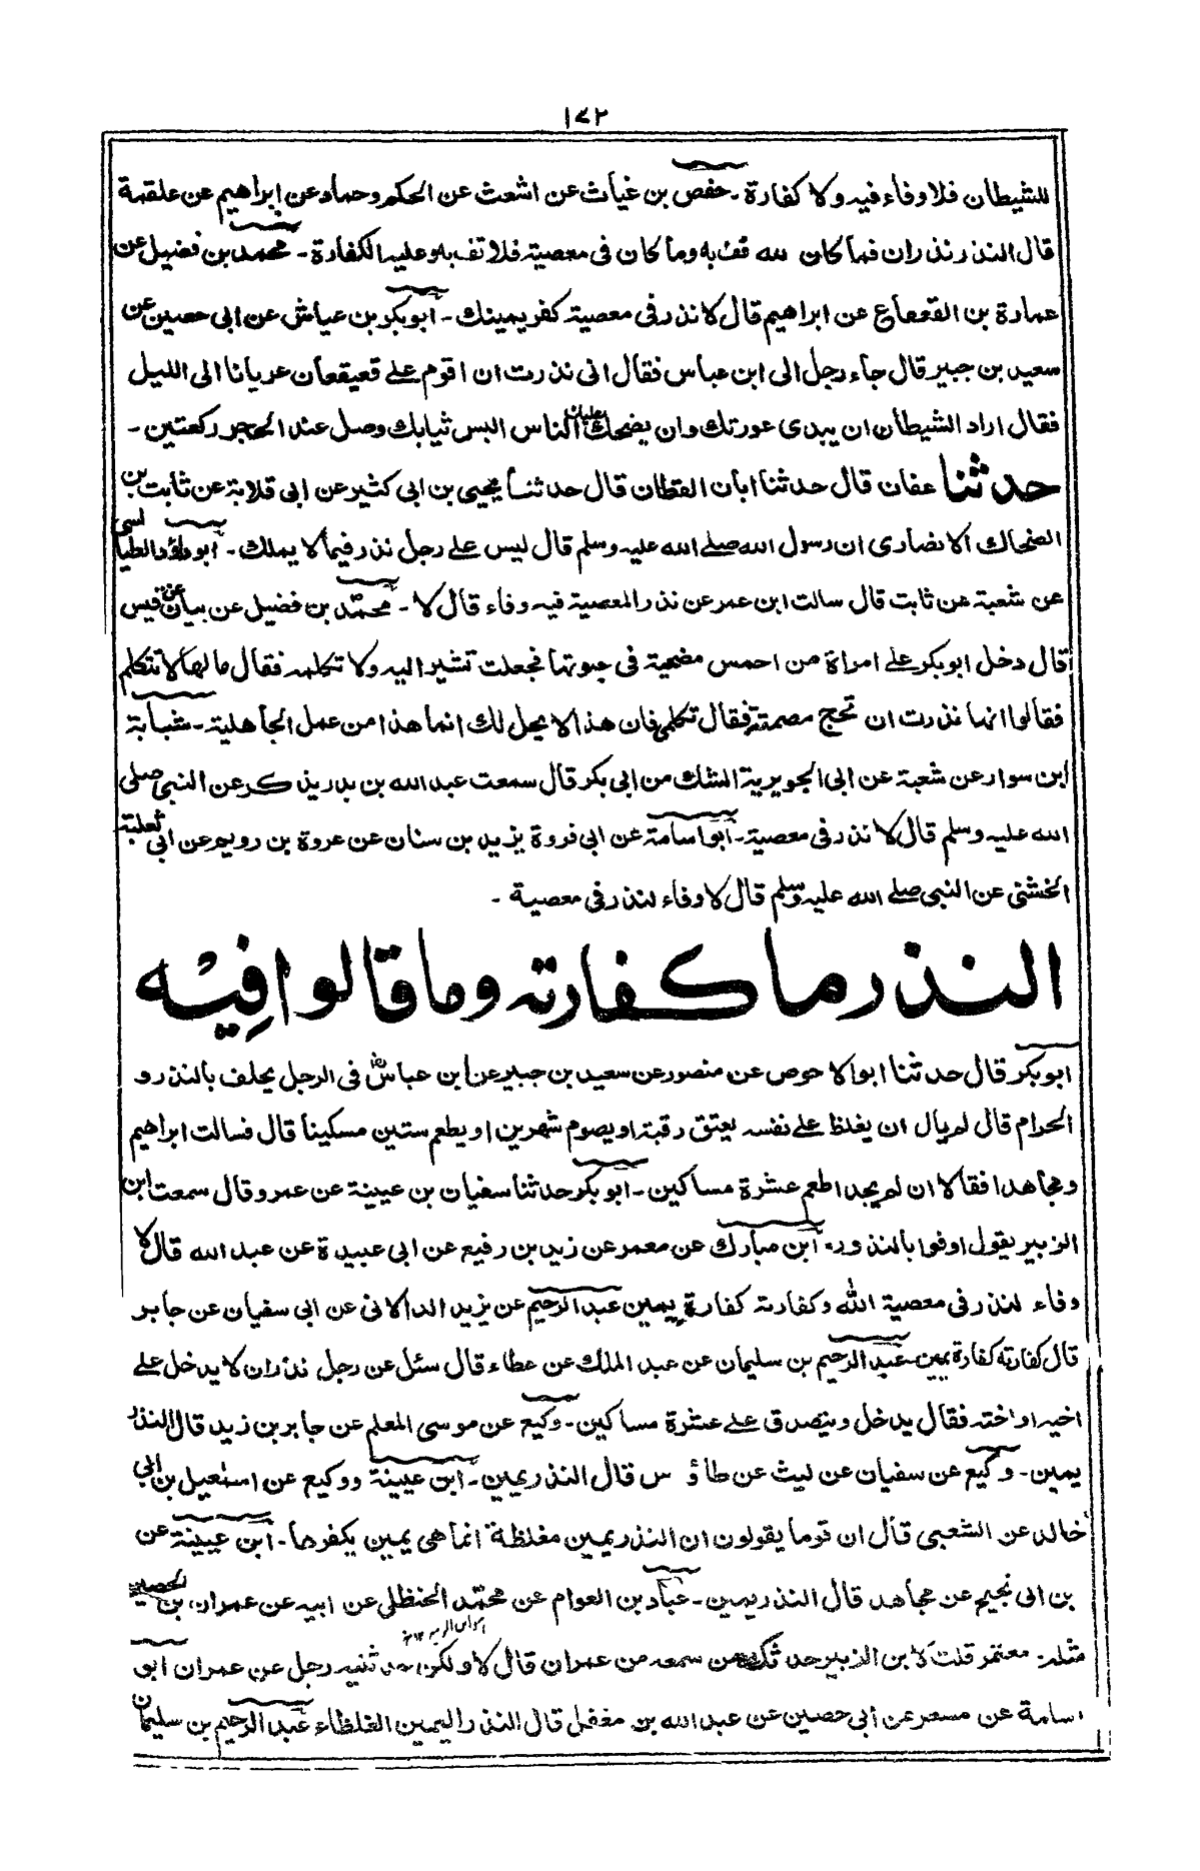 ١٧٢
للشيطان فلا وفاء فيه ولا كفارة ـ حفص بن غياث عن اشعث عن الحكم وحماد عن ابراهيم عن علقمة
قال النذر نذران فما كان لله فف به وما كان فى معصية فلا تف به وعليه الكفارة ـ محمد بن فضيل عن
عمارة بن القعقاع عن ابراهيم قال لا نذر فى معصية كفر يمينك ـ ابوبكر بن عياش عن ابى حصين عن
سعيد بن جبير قال جاء رجل الى ابن عباس فقال انى نذرت ان اقوم على قعيقعان عريانا الى الليل
فقال اراد الشيطان ان يبدى عورتك وان يضحك عليك الناس البس ثيابك وصل عند الحجر ركعتين ـ
حدثنا عفان قال حدثنا ابان القطان قال حدثنا يحيى بن ابى كثير عن ابى قلابة عن ثابت بن
الضحاك الانصارى ان رسول الله صلى الله عليه وسلم قال ليس على رجل نذر فيما لا يملك ـ ابو داؤد الطيالسى
عن شعبة عن ثابت قال سالت ابن عمر عن نذر المعصية فيه وفاء قال لا ـ محمّد بن فضيل عن بيان عن قيس
قال دخل ابوبكر على امراة من احمس مضحية فى جبوتها فجعلت تشير اليه ولا تكلمه فقال مالها لا تتكلم
فقالوا انها نذرت ان تحج مصمتة فقال تكلمى فان هذا لا يحل لك انما هذا من عمل الجاهلية ـ شبابة
ابن سوار عن شعبة عن ابى الجويرية الشك من ابى بكر قال سمعت عبد الله بن بدر يذكر عن النبى صلى
الله عليه وسلم قال لا نذر فى معصية ـ ابو اسامة عن ابى فروة يزيد بن سنان عن عروة بن رويم عن ابى ثعلبة
الخشنى عن النبى صلى الله عليه وسلم قال لا وفاء لنذر فى معصية ـ
النذر ما كفارته وما قالوا فِيْه
ابوبكر قال حدثنا ابو الاحوص عن منصور عن سعيد بن جبير عن ابن عباسؓ فى الرجل يحلف بالنذر و
الحرام قال لم يال ان يغلظ على نفسه يعتق رقبة او يصوم شهرين او يطعم ستين مسكينا قال فسالت ابراهيم
ومجاهدا فقالا ان لم يجد اطعم عشرة مساكين ـ ابوبكر حدثنا سفيان بن عيينة عن عمرو قال سمعت ابن
الزبير يقول اوفوا بالنذور ـ ابن مبارك عن معمر عن زيد بن رفيع عن ابى عبيدة عن عبد الله قال لا
وفاء لنذر فى معصية الله وكفارته كفارة يمين عبد الرحيم عن يزيد الدالانى عن ابى سفيان عن جابر
قال كفارته كفارة يمين ـ عبد الرحيم بن سليمان عن عبد الملك عن عطاء قال سئل عن رجل نذر ان لا يدخل على
اخيه او اخته فقال يدخل ويتصدق على عشرة مساكين ـ وكيع عن موسى المعلم عن جابر بن زيد قال النذر
يمين ـ وكيع عن سفيان عن ليث عن طاؤس قال النذر يمين ـ ابن عيينة ووكيع عن اسمعيل بن ابى
خالد عن الشعبى قال ان قوما يقولون ان النذر يمين مغلظة انما هى يمين يكفرها ـ ابن عيينة عن
بن ابى نجيح عن مجاهد قال النذر يمين ـ عباد بن العوام عن محمّد الحنظلى عن ابيه عن عمران بن الحصين
مثله ـ معتمر قلت لابن الزبير حدثك من سمعه من عمران قال لا ولكن حدثنيه رجل عن عمران ابو
اسامة عن مسعر عن ابى حصين عن عبد الله بن مغفل قال النذر اليمين الغلظاء عبد الرحيم بن سليمان